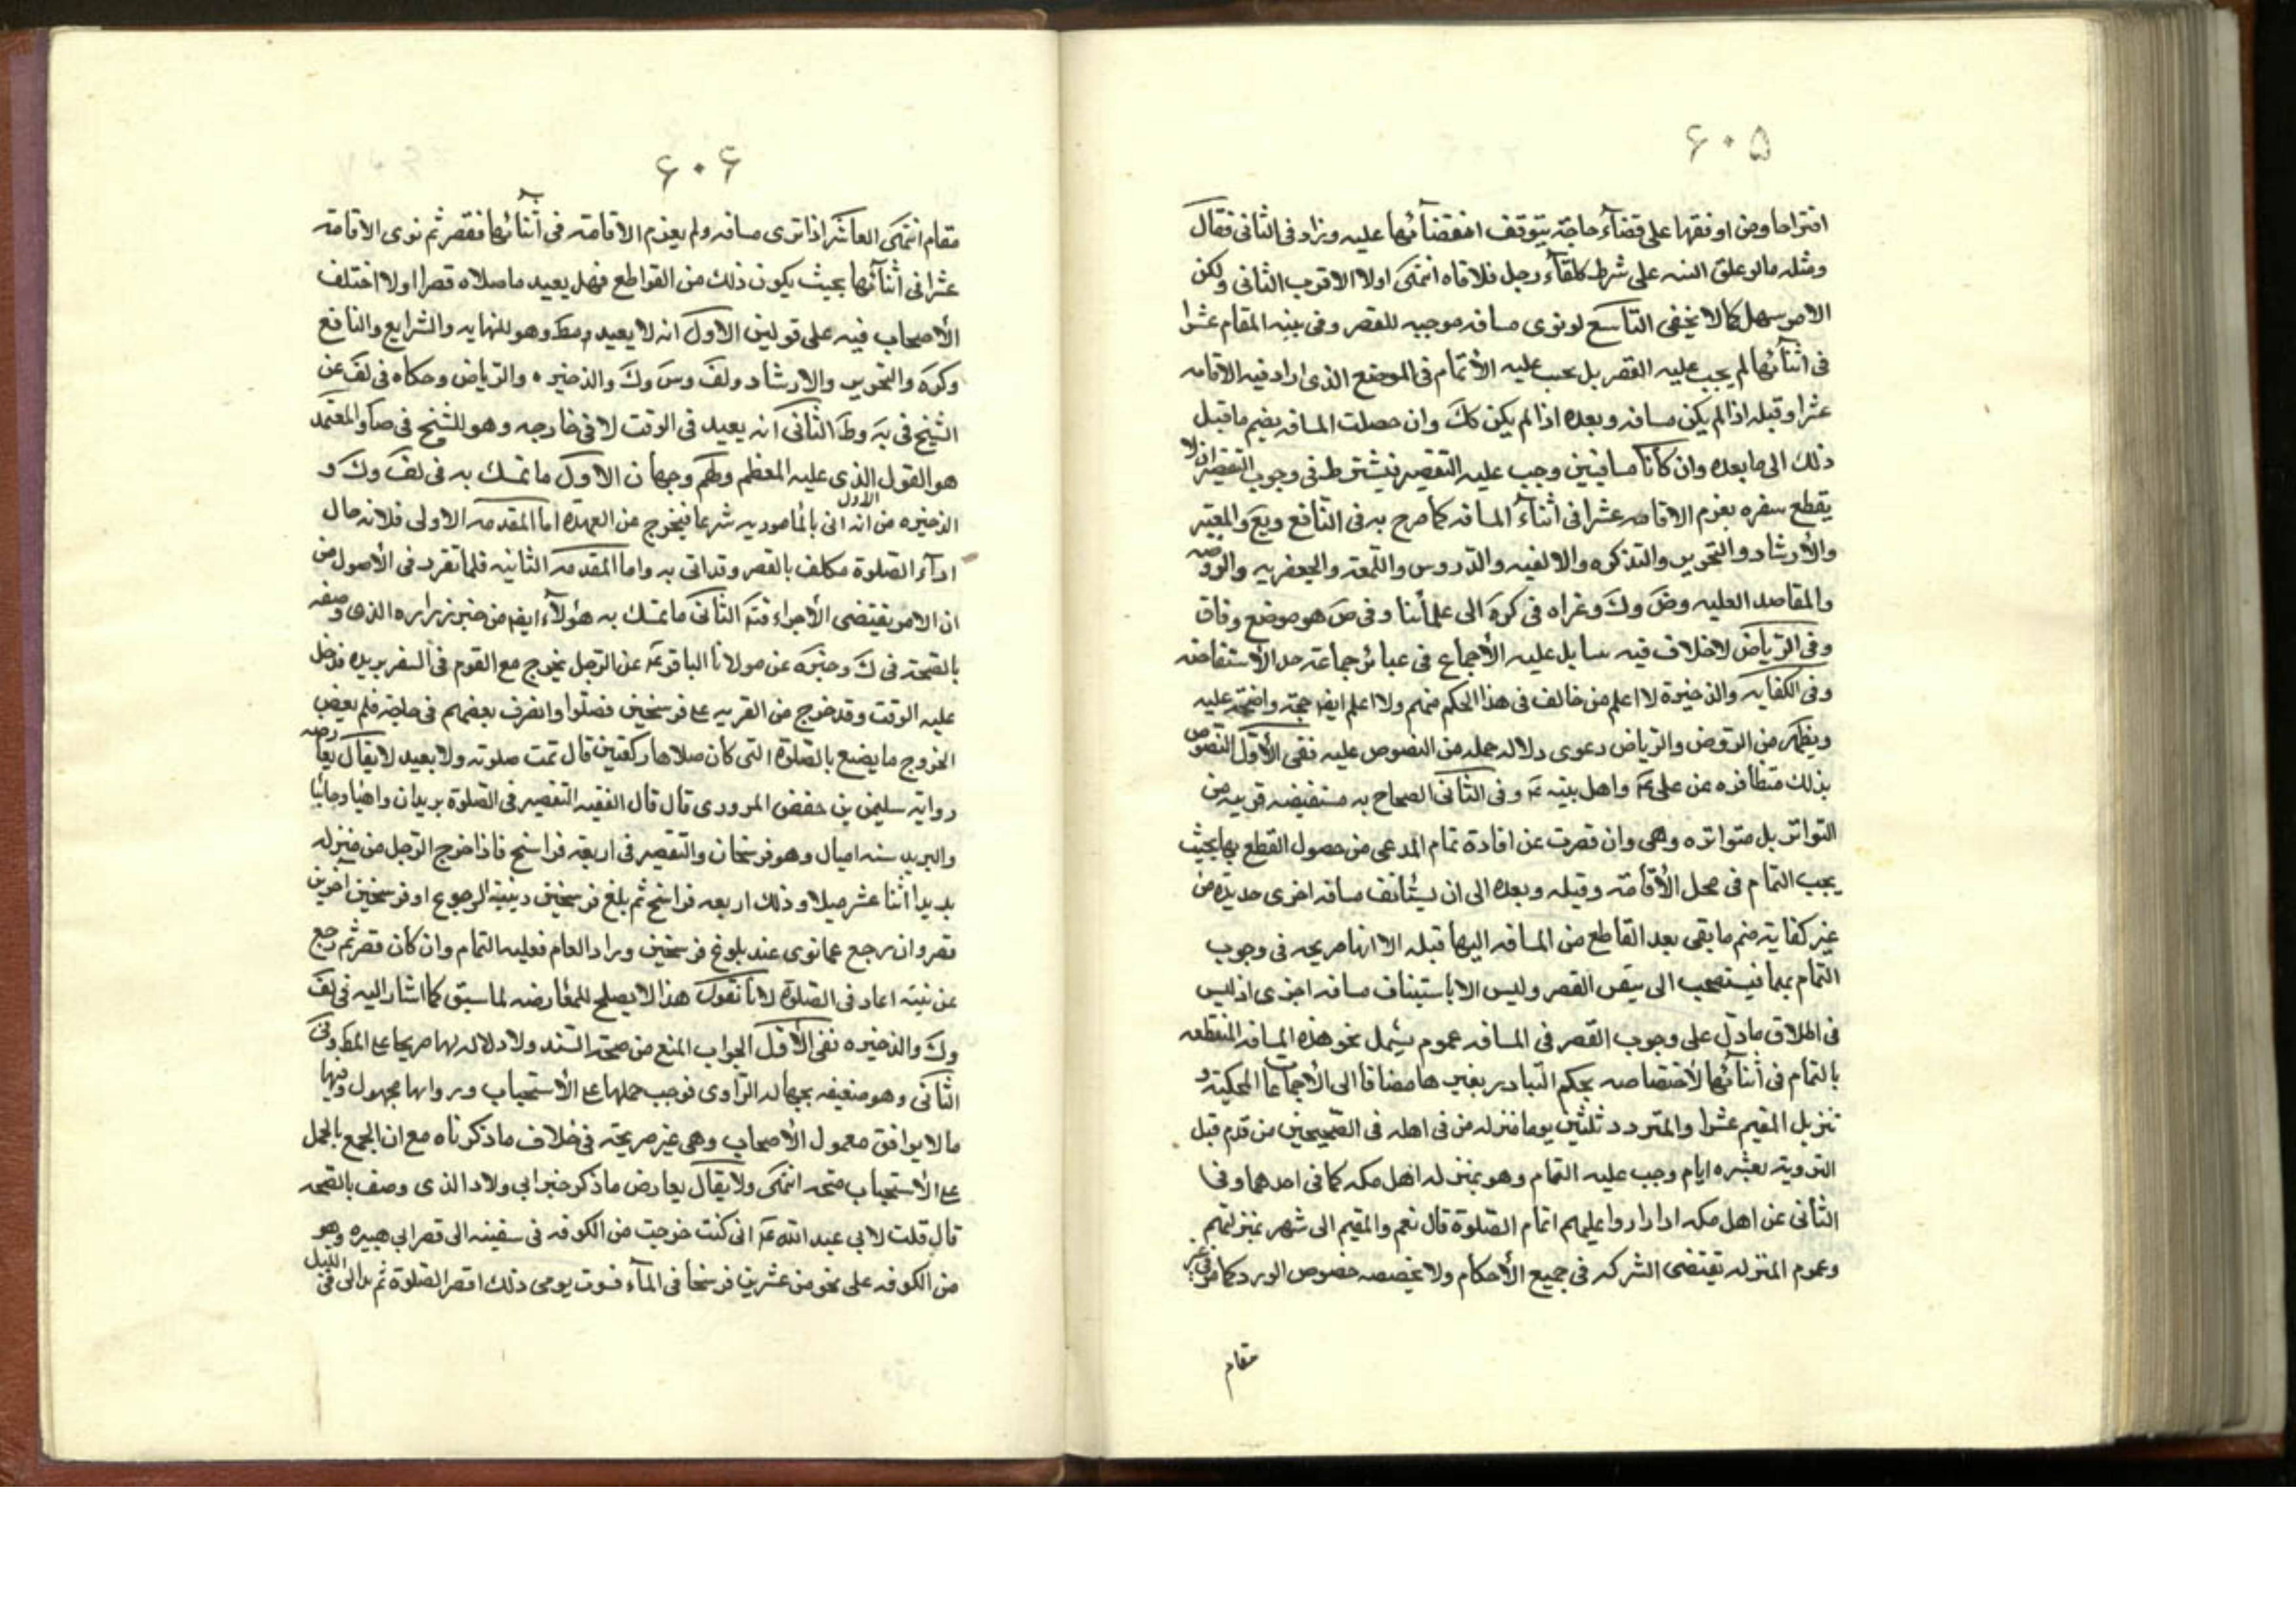 ۶۰۵
افتراحا ومن اوفقها على قضآء حاجة يتوقف انقضآئها عليه وزاد فى الثانى فقال
ومثله مالو علق النية على شرط كلقآء رجل فلاقاه انتهى اولا الاقرب الثانى ولكن
الامر سهل كما لا يخفى التاسع لو نوى مسافه موجبه للقصر وفى نيته المقام عشرا
فى اثنآئها لم يجب عليه القصر بل يجب عليه الأتمام فى الموضع الذى اراد فيه الاقامه
عشرا وقبله اذا لم يكن مسافه وبعده اذا لم يكن كك وان حصلت المسافه بضم ما قبل
ذلك الى ما بعده وان كانا مسافتين وجب عليه التقصير فيشترط فى وجوب التقصير ان لا
يقطع سفره بعزم الاقامه عشرا فى أثنآء المسافه كما صرح به فى النافع ويع والمعتبر
والأرشاد والتحرير والتذكره والالفيه والدروس واللمعة والجعفريه والروضه
والمقاصد العليه وض وك وعزاه فى كره الى علمائنا وفى ض هو موضع وفاق
وفى الرياض لا خلاف فيه بل عليه الأجماع فى عبائر جماعة حد الأستفاضه
وفى الكفايه والذخيرة لا اعلم من خالف فى هذا الحكم منهم ولا اعلم ايضا حجة واضحة عليه
ويظهر من الروض والرياض دعوى دلالة جملة من النصوص عليه ففى الأوّل النصوص
بذلك متظافره عن على ع واهل بيته ع وفى الثانى الصحاح به مستفيضه قريبه من
التواتر بل متواتره وهى وان قصرت عن افادة تمام المدعى من حصول القطع بها بحيث
يجب التمام فى محل الأقامة وقبله وبعده الى ان يستأنف مسافه اخرى جديدة من
غير كفاية ضم ما بقى بعد القاطع من المسافه اليها قبله الا انها صريحه فى وجوب
التمام بها فيستصحب الى تيقن القصر وليس الا باستيناف مسافه اخرى اذ ليس
فى اطلاق ما دلّ على وجوب القصر فى المسافه عموم يشمل نحو هذه المسافه المنقطعه
بالتمام فى أثنآئها لأختصاصه بحكم التبادر بغيرها مضافا الى الأجماعات المحكية و
تنزيل المقيم عشرا والمتردد ثلثين يوما منزله من فى اهله فى الصحيحين من قدم قبل
التروية بعشره ايام وجب عليه التمام وهو بمنزله اهل مكه كما فى احدهما وفى
الثانى عن اهل مكه اذا زاروا عليهم اتمام الصّلوة قال نعم والمقيم الى شهر بمنزلتهم
وعموم المنزله تقتضى الشركه فى جميع الأحكام ولا يخصصه خصوص الورد كما مر فى غير
مقام
۶۰۶
مقام انتهى العاشر اذا نوى مسافه ولم يعزم الاقامة فى أثنائها فقصر ثم نوى الاقامة
عشرا فى اثنآئها بحيث يكون ذلك من القواطع فهل يعيد ما صلاه قصرا اولا اختلف
الأصحاب فيه على قولين الاول انه لا يعيد مط وهو للنهايه والشرايع والنافع
وكره والتحرير والارشاد ولف وس وك والذخيره والرياض وحكاه فى لف عن
الشيخ فى يه وط الثانى انه يعيد فى الوقت لا فى خارجه وهو للشيخ فى صا والمعتمد
هو القول الذى عليه المعظم ولهم وجهان الاول ما تمسك به فى لف وك و
الذخيره من انه اتى بالمامور به شرعا فيخرج عن العهدة اما المقدمه الاولى فلانه حال
ادآء الصّلوة مكلف بالقصر وقد اتى به واما المقدمه الثانيه فلما تقرر فى الأصول من
ان الامر يقتضى الأجزاء الثانى ما تمسك به هؤلآء ايضا من خبر زراره الذى وصفه
بالصحة فى ك وخيره عن مولانا الباقر ع عن الرّجل يخرج مع القوم فى السفر يريده فدخل
عليه الوقت وقد خرج من القريه على فرسخين فصلوا وانصرف بعضهم فى حاجة فلم يقض
الخروج ما يصنع بالصّلوة التى كان صلاها ركعتين قال تمت صلوته ولا يعيد لا يقال يعارضه
رواية سليمن بن حفص المروزى قال قال الفقيه التقصير فى الصّلوة بريدان او بريد ذاهبا وجائيا
والبريد ستة اميال وهو فرسخان والتقصير فى اربعة فراسخ فاذا خرج الرّجل من منزله
يريد اثنا عشر ميلا وذلك اربعه فراسخ ثم بلغ فرسخين ونيته الرجوع او فرسخين آخرين
قصر وان رجع عما نوى عند بلوغ فرسخين واراد المقام فعليه التمام وان كان قصر ثم رجع
عن نيته اعاد فى الصّلوة لانا نقول هذا لا يصلح للمعارضه لما سبق كما اشار اليه فى لف
وك والذخيره ففى الأوّل الجواب المنع من صحة السّند ولا دلاله لها صريحا على المط وفى
الثانى وهو ضعيفه بجهاله الرّاوى فوجب حملها على الأستحباب ورواتها مجهول وفيها
ما لا يوافق معمول الأصحاب وهى غير صريحة فى خلاف ما ذكرناه مع ان الجمع بالحمل
على الأستحباب متجه انتهى ولا يقال يعارض ما ذكر خبر ابى ولاد الذى وصف بالصحه
قال قلت لابى عبد الله ع انى كنت خرجت من الكوفه فى سفينه الى قصر ابى هبيره وهو
من الكوفه على نحو من عشرين فرسخا فى المآء فسرت يومى ذلك اقصر الصّلوة ثم بدا لى فى الليل